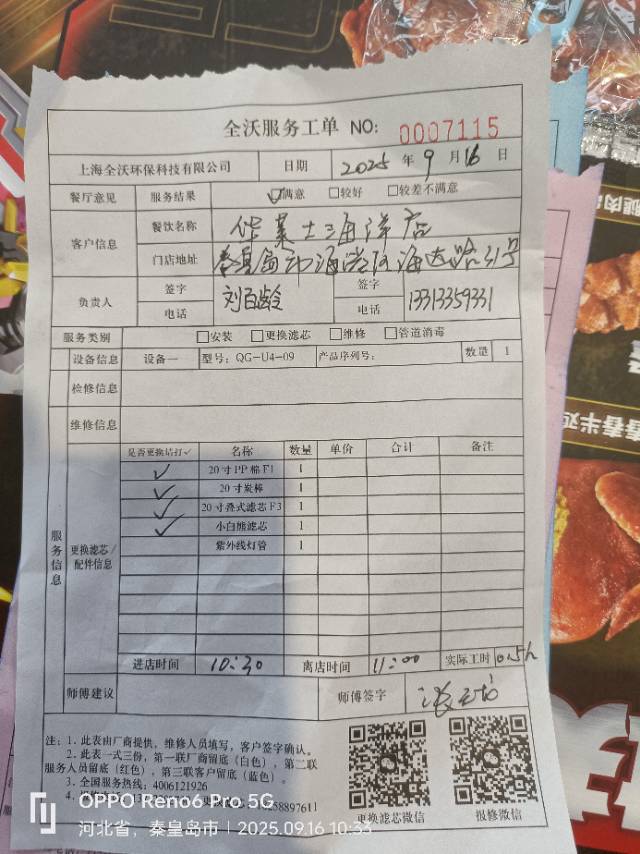 全沃服务工单 NO: 0007115
上海全沃环保科技有限公司 日期 2025 年 9 月 16 日
餐厅意见 服务结果 ☑满意 □较好 □较差不满意
客户信息 餐饮名称 华莱士海洋店
门店地址 秦皇岛市海港区海阳路31号
负责人 签字 刘百龄 签字
电话 电话 13313359331
服务类别 □安装 □更换滤芯 □维修 □管道消毒
设备信息 设备一 型号: QG-U4-09 产品序列号: 数量 1
检修信息
维修信息
服务信息
更换滤芯/配件信息
是否更换请打✓ 名称 数量 单价 合计 备注
✓ 20寸PP棉F1 1
✓ 20寸炭棒 1
✓ 20寸叠式滤芯F3 1
✓ 小白熊滤芯 1
紫外线灯管 1
进店时间 10:30 离店时间 11:00 实际工时 0.5h
师傅建议 师傅签字
注: 1. 此表由厂商提供, 维修人员填写, 客户签字确认。
2. 此表一式三份, 第一联厂商留底(白色), 第二联
服务人员留底(红色), 第三联客户留底(蓝色)。
3. 全国服务热线: 4006121926
4.
58897611
更换滤芯微信 报修微信
OPPO Reno6 Pro 5G
河北省, 秦皇岛市 | 2025.09.16 10:33